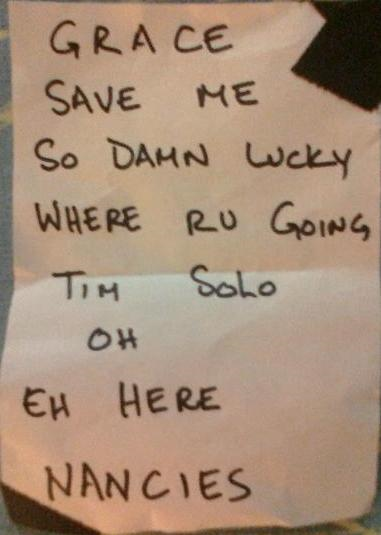 GRACE
SAVE ME
SO DAMN LUCKY
WHERE R U GOING
TIM SOLO
OH
EH HERE
NANCIES